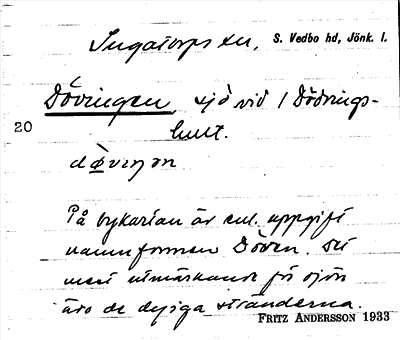 Ingatorps sn, S. Vedbo hd, Jönk. l.
Dövingen, sjö vid / Dövings-
20
hult.
På bykartan är enl. uppgift
namnformen Döven. Det
mest utmärkande för sjön
äro de dyiga stränderna.
FRITZ ANDERSSON 1933